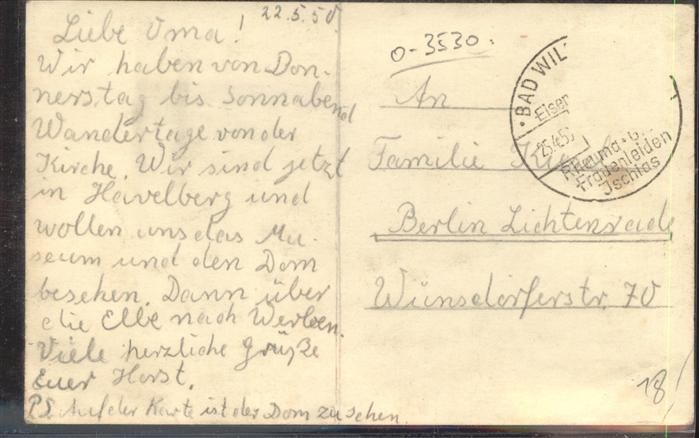 22.5.50
Liebe Oma!
Wir haben von Don-
nerstag bis Sonnabend
Wandertage von der
Kirche. Wir sind jetzt
in Havelberg und
wollen uns das Mu-
seum und den Dom
besehen. Dann über
die Elbe nach Werben.
Viele herzliche Grüße
Euer Horst.
PS. Auf der Karte ist der Dom zu sehen.
0-3530.
An
Familie
Berlin Lichtenrade
Wünsdorferstr. 70
BAD WIL
Eisen
Rheuma
Frauenleiden
Jschias
18!